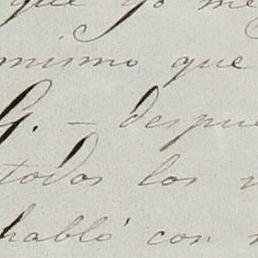 que yo me
mismo que
G. — despue
todos los
habló con